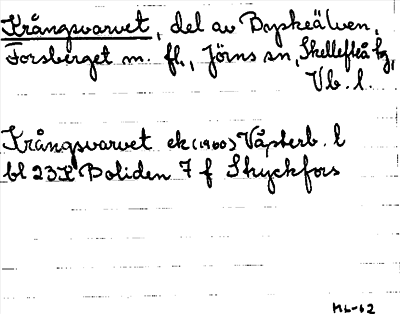 Krångsvarvet, del av Byskeälven,
Forsberget m. fl., Jörns sn, Skellefteå tg,
Vb. l.
Krångsvarvet ek (1960) Västerb. l
bl 23K Boliden 7 f Styckfors
ML-62